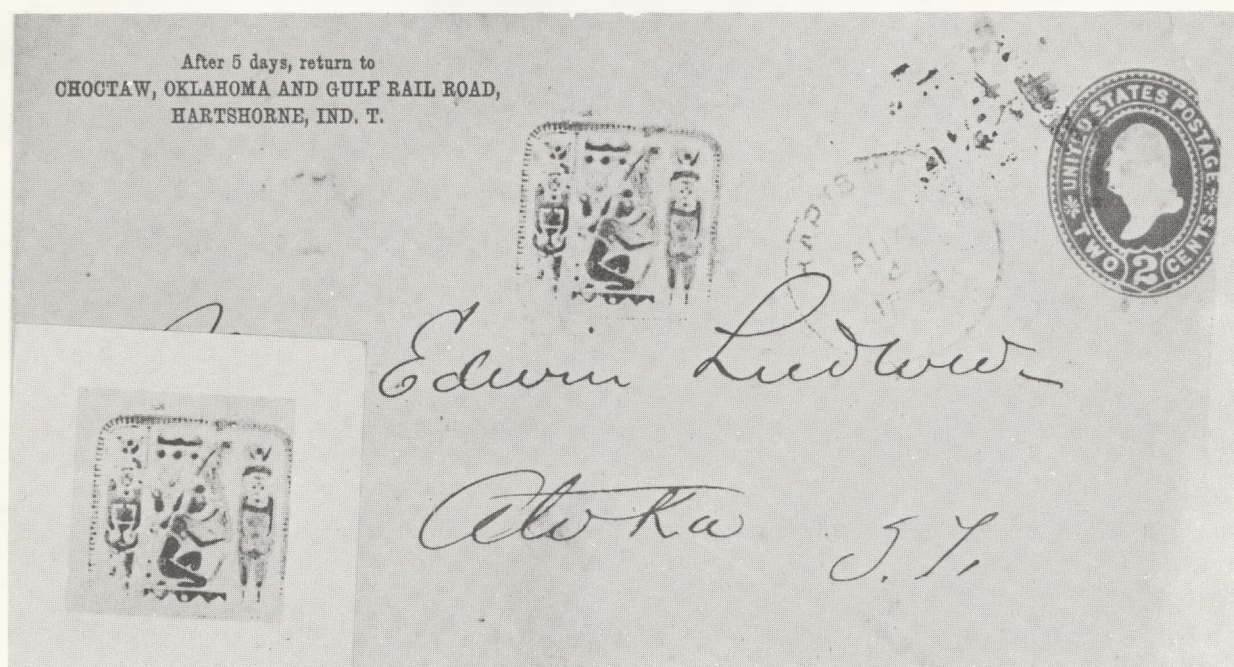 After 5 days, return to
CHOCTAW, OKLAHOMA AND GULF RAIL ROAD,
HARTSHORNE, IND. T.
UNITED STATES POSTAGE
TWO 2 CENTS
Edwin Ludlow
Atoka I.T.